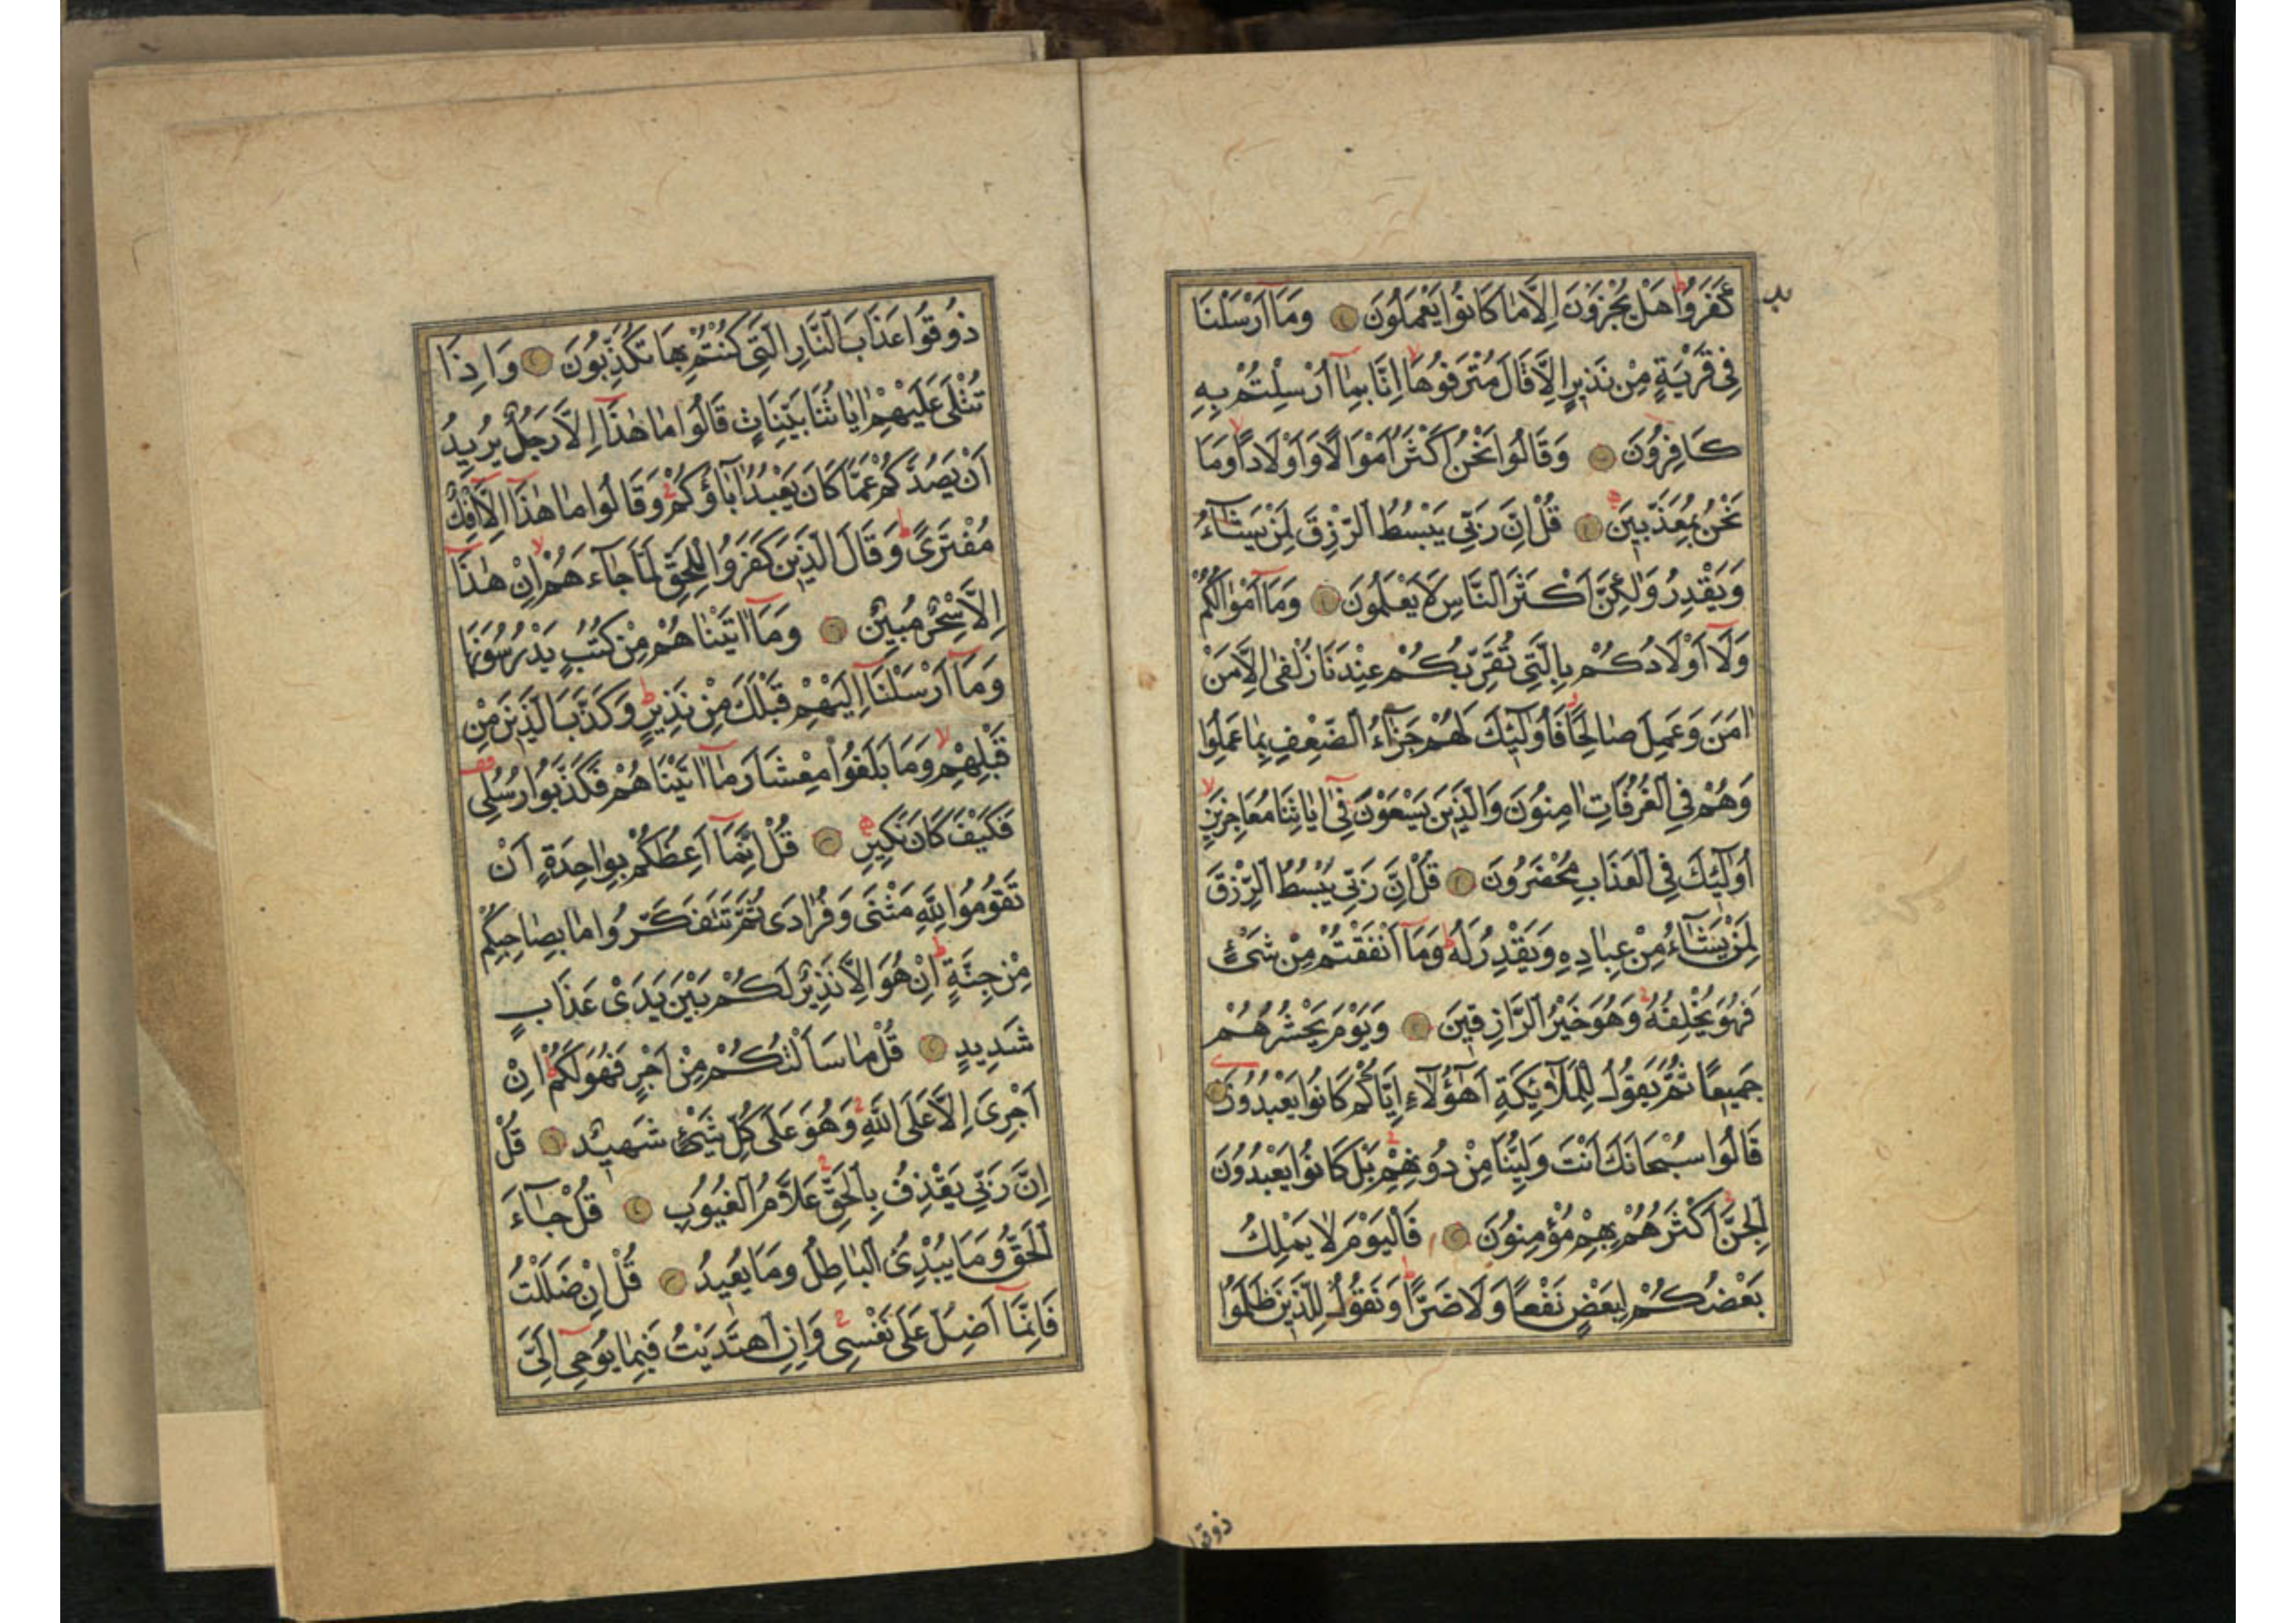 كَفَرُوا هَلْ يُجْزَوْنَ اِلَّا مَا كَانُوا يَعْمَلُونَ وَمَا اَرْسَلْنَا
فِى قَرْيَةٍ مِنْ نَذِيرٍ اِلَّا قَالَ مُتْرَفُوهَا اِنَّا بِمَا اُرْسِلْتُمْ بِهِ
كَافِرُونَ وَقَالُوا نَحْنُ اَكْثَرُ اَمْوَالًا وَاَوْلَادًا وَمَا
نَحْنُ بِمُعَذَّبِينَ قُلْ اِنَّ رَبِّى يَبْسُطُ الرِّزْقَ لِمَنْ يَشَاءُ
وَيَقْدِرُ وَلٰكِنَّ اَكْثَرَ النَّاسِ لَا يَعْلَمُونَ وَمَا اَمْوَالُكُمْ
وَلَا اَوْلَادُكُمْ بِالَّتِى تُقَرِّبُكُمْ عِنْدَنَا زُلْفٰى اِلَّا مَنْ
اٰمَنَ وَعَمِلَ صَالِحًا فَاُولٰئِكَ لَهُمْ جَزَاءُ الضِّعْفِ بِمَا عَمِلُوا
وَهُمْ فِى الْغُرُفَاتِ اٰمِنُونَ وَالَّذِينَ يَسْعَوْنَ فِى اٰيَاتِنَا مُعَاجِزِينَ
اُولٰئِكَ فِى الْعَذَابِ مُحْضَرُونَ قُلْ اِنَّ رَبِّى يَبْسُطُ الرِّزْقَ
لِمَنْ يَشَاءُ مِنْ عِبَادِهِ وَيَقْدِرُ لَهُ وَمَا اَنْفَقْتُمْ مِنْ شَىْءٍ
فَهُوَ يُخْلِفُهُ وَهُوَ خَيْرُ الرَّازِقِينَ وَيَوْمَ يَحْشُرُهُمْ
جَمِيعًا ثُمَّ يَقُولُ لِلْمَلٰئِكَةِ اَهٰؤُلَاءِ اِيَّاكُمْ كَانُوا يَعْبُدُونَ
قَالُوا سُبْحَانَكَ اَنْتَ وَلِيُّنَا مِنْ دُونِهِمْ بَلْ كَانُوا يَعْبُدُونَ
الْجِنَّ اَكْثَرُهُمْ بِهِمْ مُؤْمِنُونَ فَالْيَوْمَ لَا يَمْلِكُ
بَعْضُكُمْ لِبَعْضٍ نَفْعًا وَلَا ضَرًّا وَنَقُولُ لِلَّذِينَ ظَلَمُوا
ذوقوا
ذُوقُوا عَذَابَ النَّارِ الَّتِى كُنْتُمْ بِهَا تُكَذِّبُونَ وَاِذَا
تُتْلٰى عَلَيْهِمْ اٰيَاتُنَا بَيِّنَاتٍ قَالُوا مَا هٰذَا اِلَّا رَجُلٌ يُرِيدُ
اَنْ يَصُدَّكُمْ عَمَّا كَانَ يَعْبُدُ اٰبَاؤُكُمْ وَقَالُوا مَا هٰذَا اِلَّا اِفْكٌ
مُفْتَرًى وَقَالَ الَّذِينَ كَفَرُوا لِلْحَقِّ لَمَّا جَاءَهُمْ اِنْ هٰذَا
اِلَّا سِحْرٌ مُبِينٌ وَمَا اٰتَيْنَاهُمْ مِنْ كُتُبٍ يَدْرُسُونَهَا
وَمَا اَرْسَلْنَا اِلَيْهِمْ قَبْلَكَ مِنْ نَذِيرٍ وَكَذَّبَ الَّذِينَ مِنْ
قَبْلِهِمْ وَمَا بَلَغُوا مِعْشَارَ مَا اٰتَيْنَاهُمْ فَكَذَّبُوا رُسُلِى
فَكَيْفَ كَانَ نَكِيرِ قُلْ اِنَّمَا اَعِظُكُمْ بِوَاحِدَةٍ اَنْ
تَقُومُوا لِلّٰهِ مَثْنٰى وَفُرَادٰى ثُمَّ تَتَفَكَّرُوا مَا بِصَاحِبِكُمْ
مِنْ جِنَّةٍ اِنْ هُوَ اِلَّا نَذِيرٌ لَكُمْ بَيْنَ يَدَىْ عَذَابٍ
شَدِيدٍ قُلْ مَا سَاَلْتُكُمْ مِنْ اَجْرٍ فَهُوَ لَكُمْ اِنْ
اَجْرِىَ اِلَّا عَلَى اللّٰهِ وَهُوَ عَلٰى كُلِّ شَىْءٍ شَهِيدٌ قُلْ
اِنَّ رَبِّى يَقْذِفُ بِالْحَقِّ عَلَّامُ الْغُيُوبِ قُلْ جَاءَ
الْحَقُّ وَمَا يُبْدِئُ الْبَاطِلُ وَمَا يُعِيدُ قُلْ اِنْ ضَلَلْتُ
فَاِنَّمَا اَضِلُّ عَلٰى نَفْسِى وَاِنِ اهْتَدَيْتُ فَبِمَا يُوحٰى اِلَىَّ